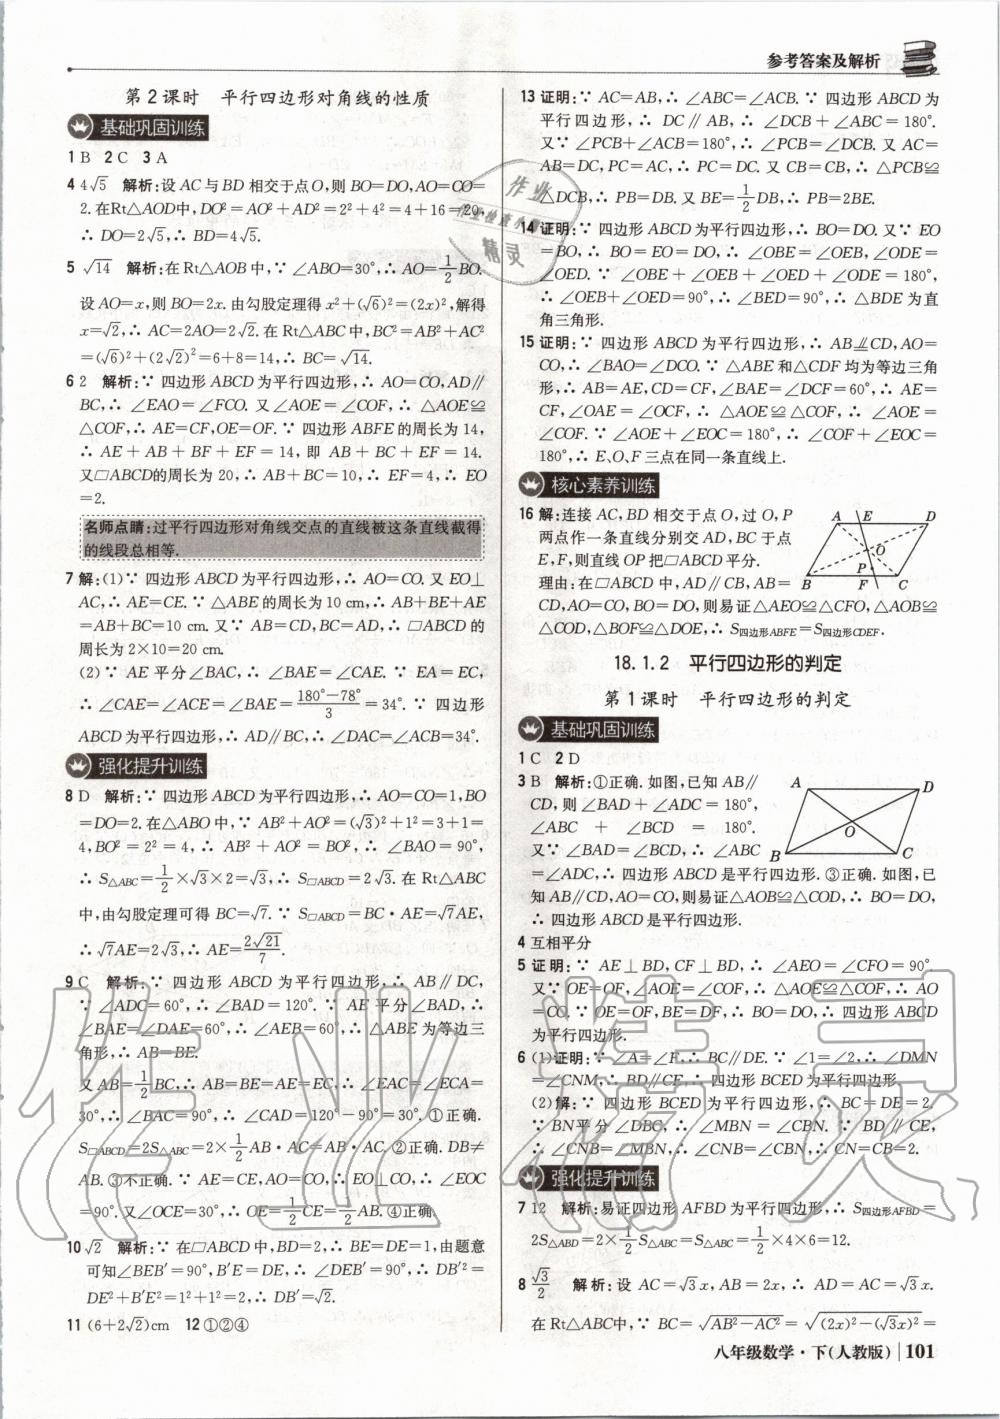 参考答案及解析
第2课时 平行四边形对角线的性质
基础巩固训练
1 B 2 C 3 A
4 4√5 解析:设AC与BD相交于点O,则BO=DO,AO=CO=
2.在Rt△AOD中,DO²=AO²+AD²=2²+4²=4+16=20,
∴DO=2√5,∴BD=4√5.
5 √14 解析:在Rt△AOB中,∵∠ABO=30°,∴AO=1/2BO.
设AO=x,则BO=2x.由勾股定理得x²+(√6)²=(2x)²,解得
x=√2,∴AC=2AO=2√2.在Rt△ABC中,BC²=AB²+AC²
=(√6)²+(2√2)²=6+8=14,∴BC=√14.
6 2 解析:∵四边形ABCD为平行四边形,∴AO=CO,AD∥
BC,∴∠EAO=∠FCO.又∠AOE=∠COF,∴△AOE≌
△COF,∴AE=CF,OE=OF.∵四边形ABFE的周长为14,
∴AE+AB+BF+EF=14,即AB+BC+EF=14.
又□ABCD的周长为20,∴AB+BC=10,∴EF=4,∴EO
=2.
名师点睛:过平行四边形对角线交点的直线被这条直线截得
的线段总相等.
7 解:(1)∵四边形ABCD为平行四边形,∴AO=CO.又EO⊥
AC,∴AE=CE.∵△ABE的周长为10 cm,∴AB+BE+AE
=AB+BC=10 cm.又∵AB=CD,BC=AD,∴□ABCD的
周长为2×10=20 cm.
(2)∵AE平分∠BAC,∴∠BAE=∠CAE.∵EA=EC,
∴∠CAE=∠ACE=∠BAE=(180°-78°)/3=34°.∵四边形
ABCD为平行四边形,∴AD∥BC,∴∠DAC=∠ACB=34°.
强化提升训练
8 D 解析:∵四边形ABCD为平行四边形,∴AO=CO=1,BO
=DO=2.在△ABO中,∵AB²+AO²=(√3)²+1²=3+1=
4,BO²=2²=4,∴AB²+AO²=BO²,∴∠BAO=90°,
∴S△ABC=1/2×√3×2=√3,∴S□ABCD=2√3.在Rt△ABC
中,由勾股定理可得BC=√7.∵S□ABCD=BC·AE=√7AE,
∴√7AE=2√3,∴AE=2√21/7.
9 C 解析:∵四边形ABCD为平行四边形,∴AB∥DC,
∵∠ADC=60°,∴∠BAD=120°.∵AE平分∠BAD,∴
∠BAE=∠DAE=60°,∴∠AEB=60°,∴△ABE为等边三
角形,∴AB=BE.
又AB=1/2BC,∴AB=BE=AE=EC,∴∠EAC=∠ECA=
30°,∴∠BAC=90°,∴∠CAD=120°-90°=30°.①正确.
S□ABCD=2S△ABC=2×1/2AB·AC=AB·AC.②正确.DB≠
AB.③不正确.∵AE=CE,AO=CO,∴EO⊥CO,∴∠EOC
=90°.又∠OCE=30°,∴OE=1/2CE=1/2AB.④正确.
10 √2 解析:∵在□ABCD中,BD=2,∴BE=DE=1,由题意
可知∠BEB′=90°,B′E=DE,∴∠DEB′=90°,∴DB′²=
DE²+B′E²=1²+1²=2,∴DB′=√2.
11 (6+2√2)cm 12 ①②④
13 证明:∵AC=AB,∴∠ABC=∠ACB.∵四边形ABCD为
平行四边形,∴DC∥AB,∴∠DCB+∠ABC=180°.
又∵∠PCB+∠ACB=180°,∴∠PCB=∠DCB.又AC=
AB=DC,PC=AC,∴PC=DC.又CB=CB,∴△PCB≌
△DCB,∴PB=DB.又BE=1/2DB,∴PB=2BE.
14 证明:∵四边形ABCD为平行四边形,∴BO=DO.又∵EO
=BO,∴BO=EO=DO,∴∠OBE=∠OEB,∠ODE=
∠OED.∵∠OBE+∠OEB+∠OED+∠ODE=180°,
∴∠OEB+∠OED=90°,∴∠BED=90°,∴△BDE为直
角三角形.
15 证明:∵四边形ABCD为平行四边形,∴AB⫽CD,AO=
CO,∴∠BAO=∠DCO.∵△ABE和△CDF均为等边三角
形,∴AB=AE,CD=CF,∠BAE=∠DCF=60°,∴AE=
CF,∠OAE=∠OCF,∴△AOE≌△COF,∴∠AOE=
∠COF.∵∠AOE+∠EOC=180°,∴∠COF+∠EOC=
180°,∴E、O、F三点在同一条直线上.
核心素养训练
16 解:连接AC,BD相交于点O,过O,P
两点作一条直线分别交AD,BC于点
E,F,则直线OP把□ABCD平分.
理由:在□ABCD中,AD∥CB,AB=
CD,AO=CO,BO=DO,则易证△AEO≌△CFO,△AOB≌
△COD,△BOF≌△DOE,∴S四边形ABFE=S四边形CDEF.
A E D
O
P
B F C
18.1.2 平行四边形的判定
第1课时 平行四边形的判定
基础巩固训练
1 C 2 D
3 B 解析:①正确.如图,已知AB∥
CD,则∠BAD+∠ADC=180°,
∠ABC+∠BCD=180°.
又∵∠BAD=∠BCD,∴∠ABC
=∠ADC,∴四边形ABCD是平行四边形.③正确.如图,已
知AB∥CD,AO=CO,则易证△AOB≌△COD,∴BO=DO,
∴四边形ABCD是平行四边形.
A D
O
B C
4 互相平分
5 证明:∵AE⊥BD,CF⊥BD,∴∠AEO=∠CFO=90°.
又∵OE=OF,∠AOE=∠COF,∴△AOE≌△COF,∴AO
=CO.∵OE=OF,BE=DF,∴BO=DO,∴四边形ABCD
为平行四边形.
6 (1)证明:∵∠A=∠F,∴BC∥DE.∵∠1=∠2,∴∠DMN
=∠CNM,∴BD∥CE,∴四边形BCED为平行四边形.
(2)解:∵四边形BCED为平行四边形,∴BC=DE=2.
∵BN平分∠DBC,∴∠MBN=∠CBN.∵BD∥CE,
∴∠CNB=∠MBN,∴∠CNB=∠CBN,∴CN=CB=2.
强化提升训练
7 12 解析:易证四边形AFBD为平行四边形,∴S四边形AFBD=
2S△ABD=2×1/2S△ABC=S△ABC=1/2×4×6=12.
8 √3/2 解析:设AC=√3x,AB=2x,∴AD=AC=√3x.
在Rt△ACB中,∵BC=√(AB²-AC²)=√((2x)²-(√3x)²)=
八年级数学·下(人教版) 101
作业
作业检查小
精灵
作业精灵